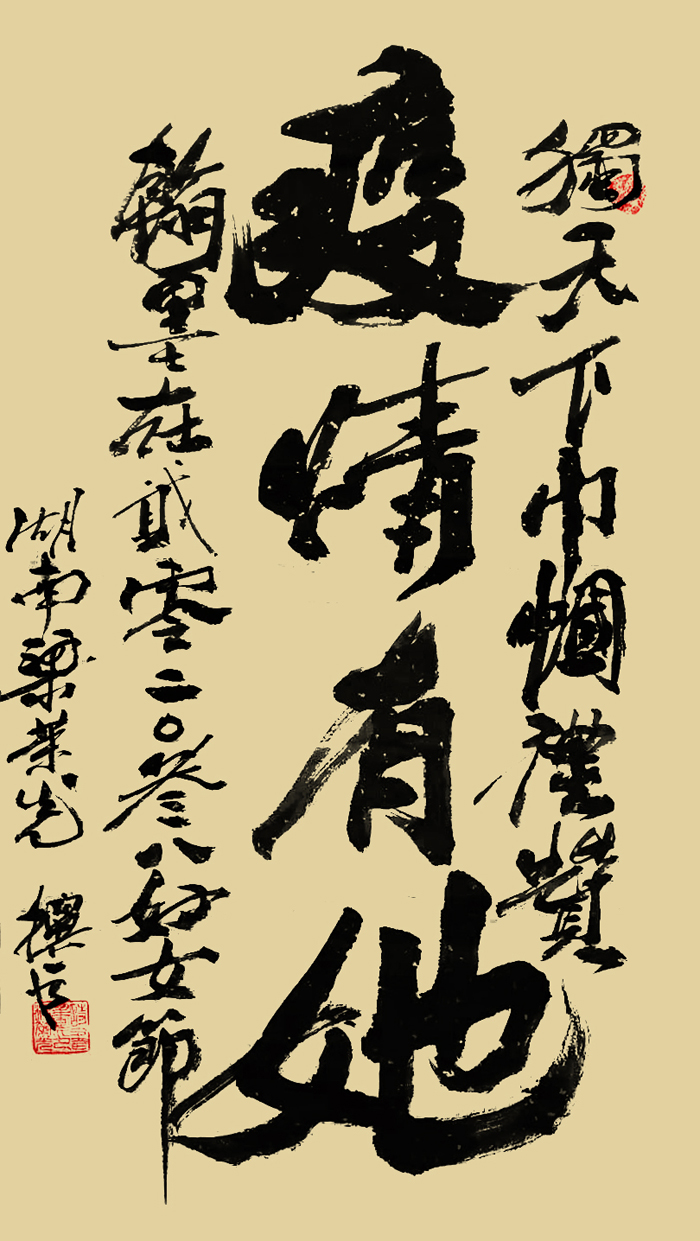 獨天下巾幗禮贊
疫情有她
翰墨在貳零二〇叁八妇女節
湖南梁荣先 撰书